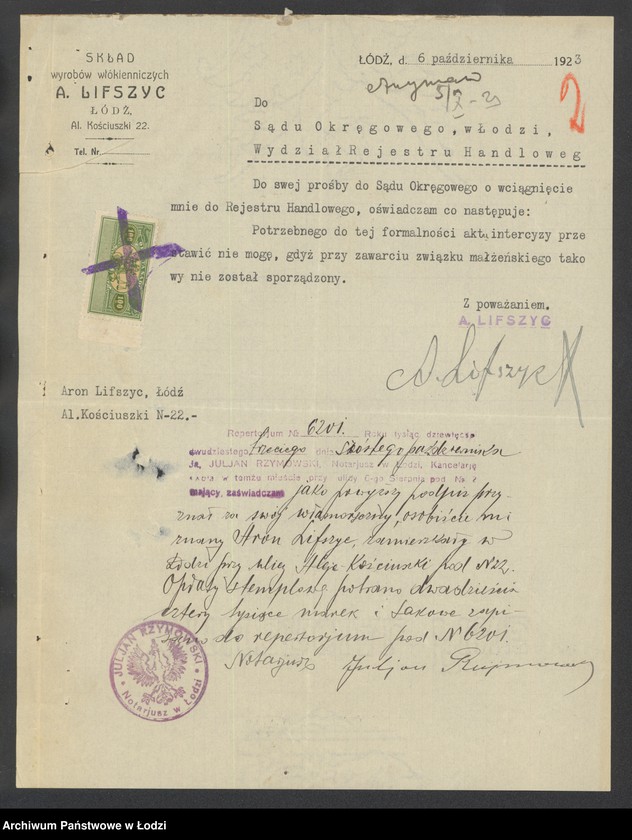 SKŁAD
wyrobów włókienniczych
A. LIFSZYC
ŁÓDŹ,
Al. Kościuszki 22.
Tel. Nr.
ŁÓDŹ, d. 6 października 1923
5/X - 23
2
Do
Sądu Okręgowego, włodzi,
Wydział Rejestru Handloweg
Do swej prośby do Sądu Okręgowego o wciągnięcie
mnie do Rejestru Handlowego, oświadczam co następuje:
Potrzebnego do tej formalności aktu intercyzy prze
stawić nie mogę, gdyż przy zawarciu związku małżeńskiego tako
wy nie został sporządzony.
Z poważaniem.
A. LIFSZYC
A. Lifszyc
Aron Lifszyc, Łódź
Al.Kościuszki N-22.-
Repertorjum № 6201. Roku tysiąc dziewięćse
dwudziestego trzeciego dnia szóstego października
Ja, JULJAN RZYMOWSKI, Notarjusz w Łodzi, Kancelarję
w temże mieście przy ulicy 6-go Sierpnia pod № 2
mający, zaświadczam jako powyższy podpis przy-
znał za swój własnoręczny, osobiście mi
znany Aron Lifszyc, zamieszkały w
Łodzi przy ulicy Aleje Kościuszki pod N22.
Opłaty stemplowe pobrano dwadzieścia
cztery tysiące marek i takowe zapi-
sano do repertorjum pod N 6201.
Notarjusz Juljan Rzymowski
JULJAN RZYMOWSKI
Notarjusz w Łodzi
Archiwum Państwowe w Łodzi